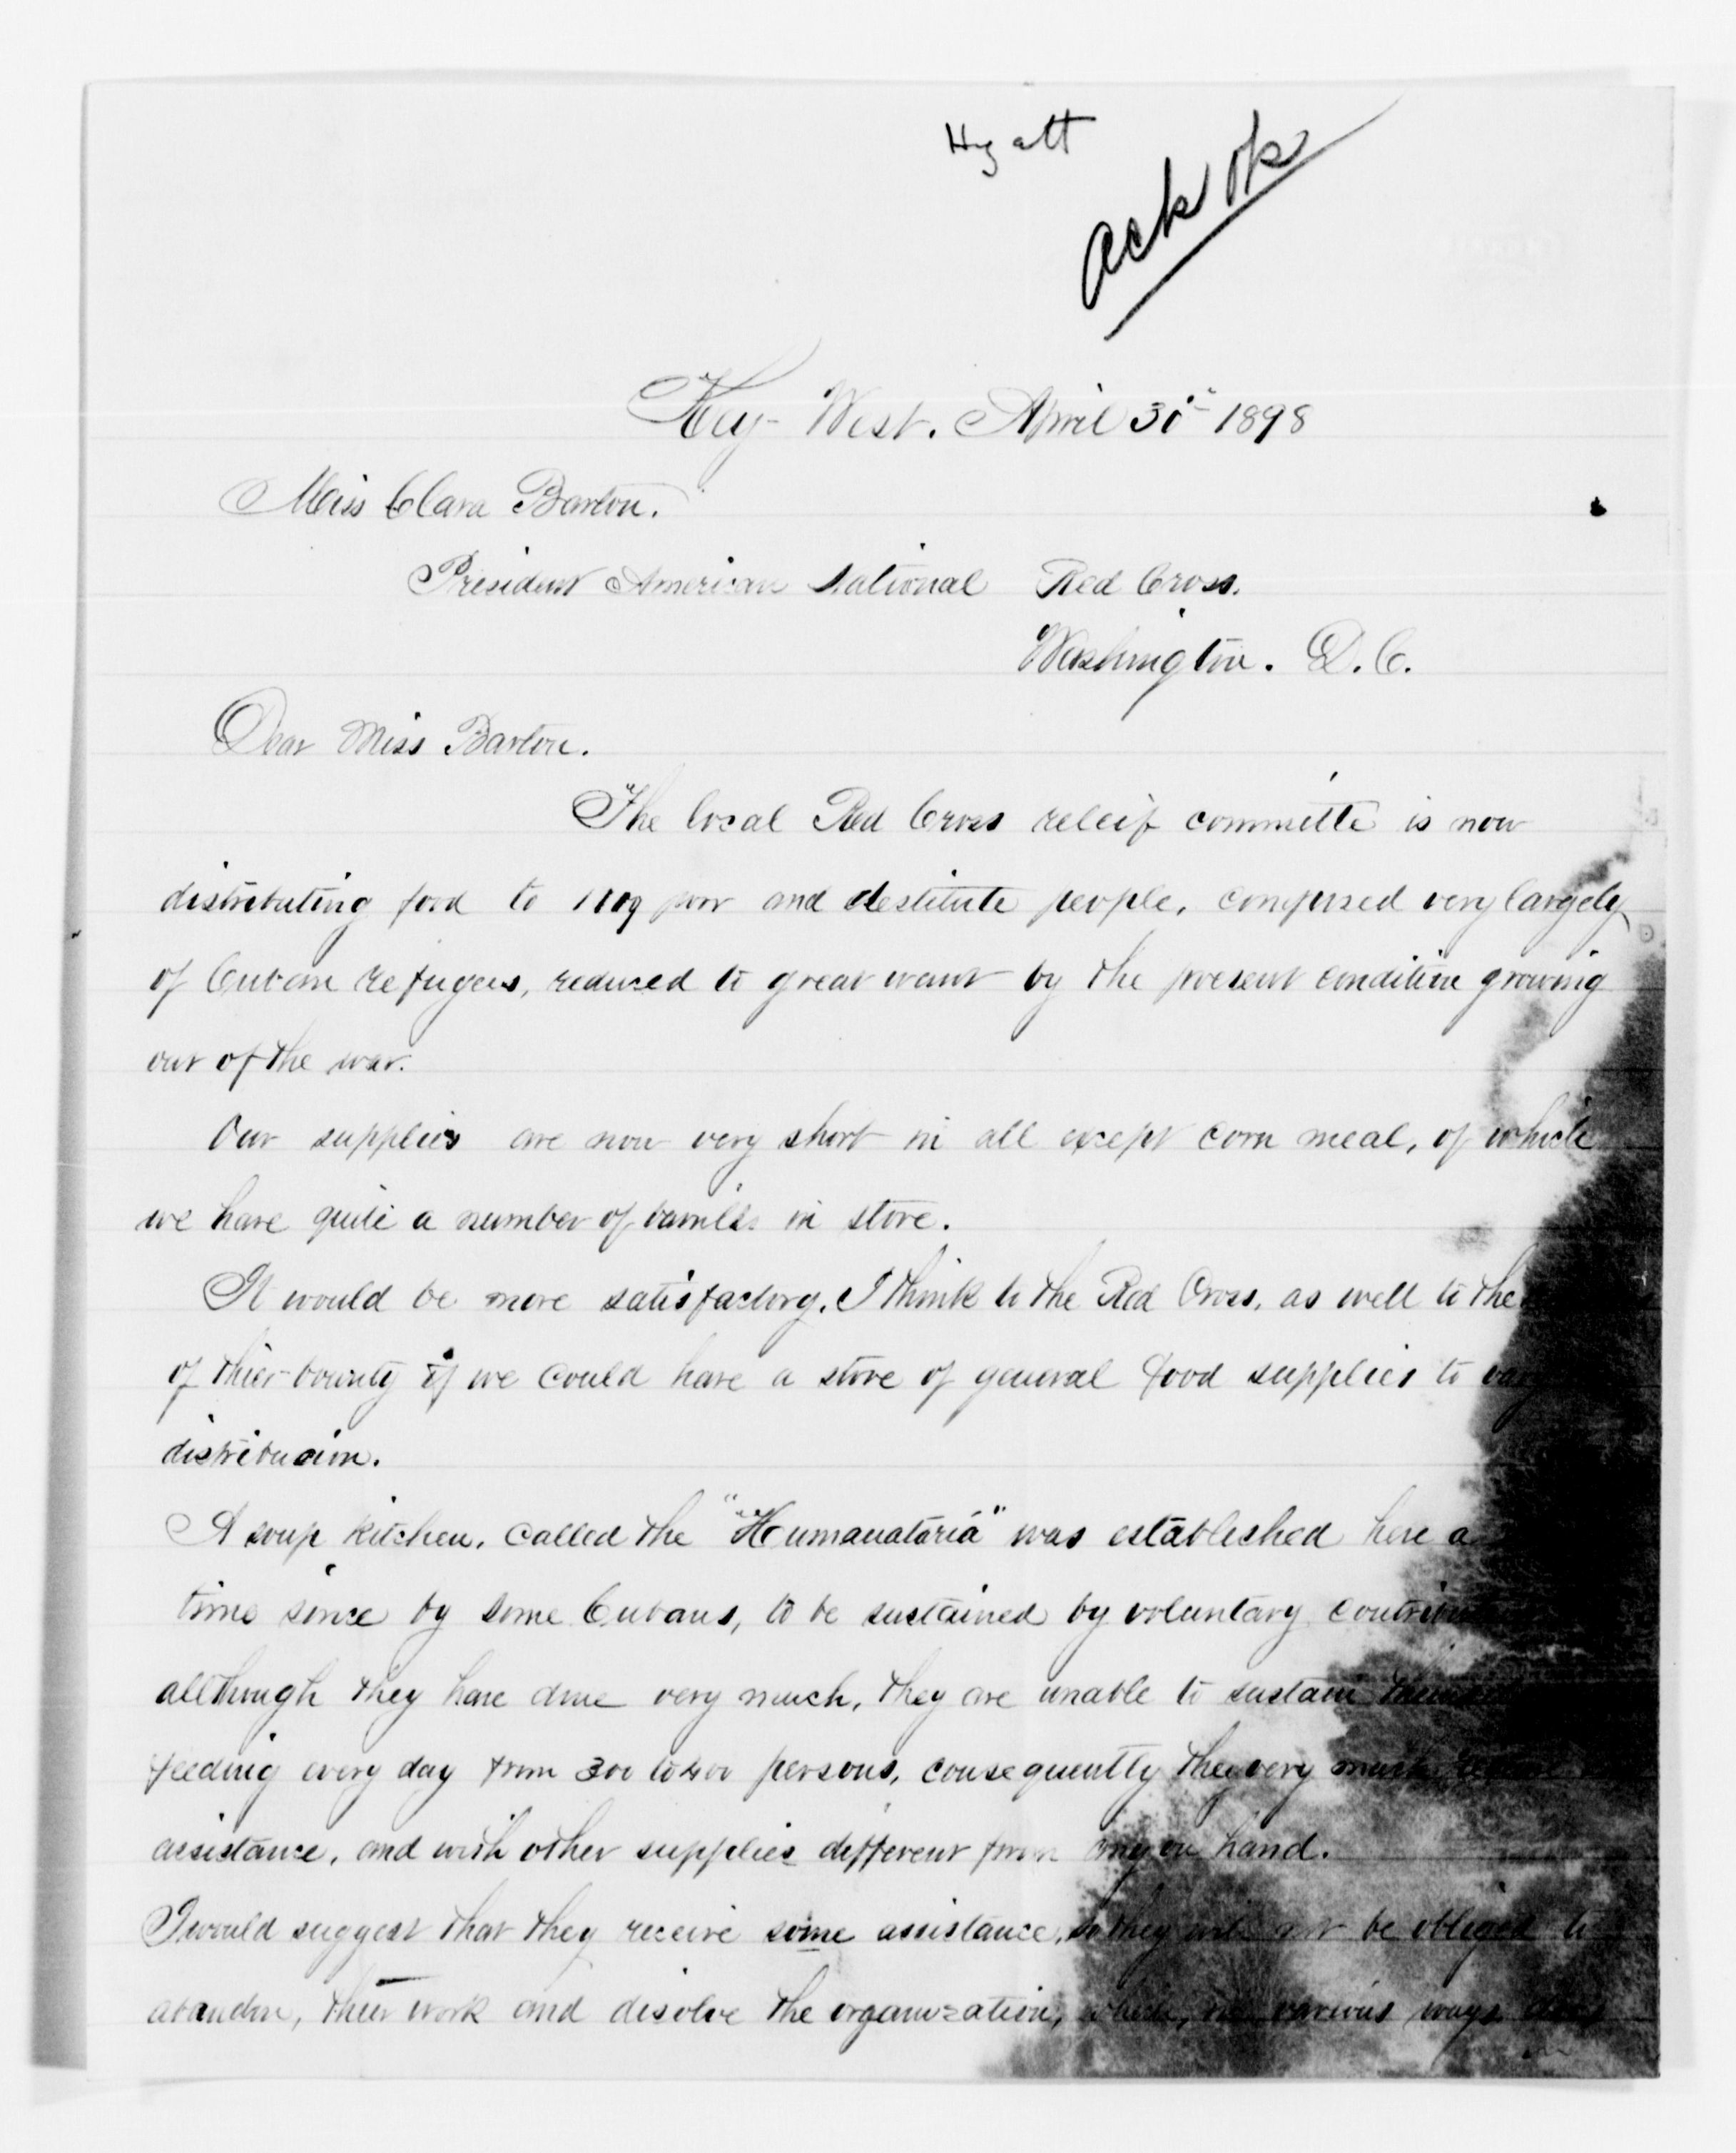 Hyatt
Ack ok
Key-West. April 30" 1898
Miss Clara Barton.
President American National Red Cross.
Washington. D.C.
Dear Miss Barton.
The local Red Cross releif committe is now
distributing food to 1109 poor and destitute people, composed very largely
of Cuban refugees, reduced to great want by the present condition growing
out of the war.
Our supplies are now very short in all except corn meal, of which
we have quite a number of barrels in store.
It would be more satisfactory, I think to the Red Cross, as well to the
of thier bounty if we could have a store of general food supplies to vary
distribucion.
A soup kitchen, called the "Humanataria" was established here a
time since by some Cubans, to be sustained by voluntary
allthough they have done very much, they are unable to sustain
feeding every day from 300 to 400 persons, consequently they very much
assistance, and with other supplies different from any on hand.
I would suggest that they receive some assistance, so they will not be obliged to
abandon, their work and disolve the organization, which, in various ways